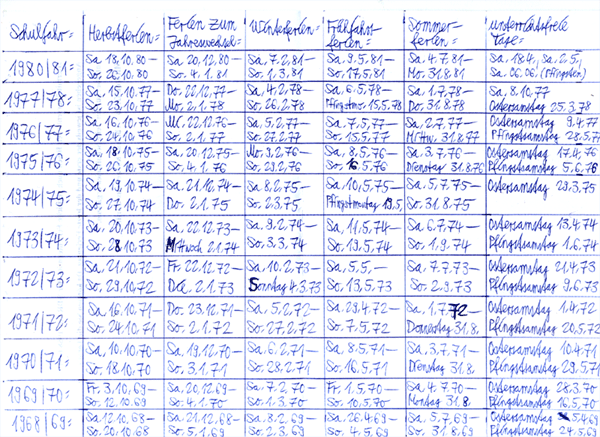 Schuljahr: Herbstferien: Ferien zum Jahreswechsel: Winterferien: Frühjahrsferien: Sommerferien: unterrichtsfreie Tage:
1980/81: Sa, 18.10.80– Sa, 20.12.80– Sa, 7.2.81– Sa, 9.5.81– Sa, 4.7.81– Sa, 18.4., Sa, 2.5.,
So. 26.10.80 So. 4.1.81 So. 1.3.81 So. 17.5.81 Mo. 31.8.81 Sa. 06.06. (Pfingsten)
1977/78: Sa, 15.10.77– Do, 22.12.77– Sa, 4.2.78– Sa, 6.5.78– Sa, 1.7.78– Sa, 8.10.77
So. 23.10.77 Mo. 2.1.78 So. 26.2.78 Pfingstmo. 15.5.78 Do. 31.8.78 Ostersamstag 25.3.78
1976/77: Sa, 16.10.76– Mi, 22.12.76– Sa, 5.2.77– Sa, 7.5.77– Sa, 2.7.77– Ostersamstag 9.4.77
So. 24.10.76 So. 2.1.77 So. 27.2.77 So. 15.5.77 Mittw. 31.8.77 Pfingstsamstag 28.5.77
1975/76: Sa, 18.10.75– Sa, 20.12.75– Mo, 9.2.76– Sa, 8.5.76– Sa, 3.7.76– Ostersamstag 17.4.76
So. 26.10.75 So. 4.1.76 So. 29.2.76 So. 16.5.76 Dienstag 31.8.76 Pfingstsamstag 5.6.76
1974/75: Sa, 19.10.74– Sa, 21.12.74– Sa, 8.2.75– Sa, 10.5.75– Sa, 5.7.75– Ostersamstag 29.3.75
So. 27.10.74 Do. 2.1.75 So. 2.3.75 Pfingstmontag 19.5. So. 31.8.75
1973/74: Sa, 20.10.73– Sa, 22.12.73– Sa, 9.2.74– Sa, 11.5.74– Sa, 6.7.74– Ostersamstag 13.4.74
So. 28.10.73 Mittwoch 2.1.74 So. 3.3.74 So. 19.5.74 So. 1.9.74 Pfingstsamstag 1.6.74
1972/73: Sa, 21.10.72– Fr. 22.12.72– Sa, 10.2.73– Sa, 5.5.– Sa, 7.7.73– Ostersamstag 21.4.73
So. 29.10.72 2.1.73 Sonntag 4.3.73 So. 13.5.73 So. 2.9.73 Pfingstsamstag 9.6.73
1971/72: Sa, 16.10.71– Do. 23.12.71– Sa, 5.2.72– Sa, 29.4.72– Sa, 1.7.72– Ostersamstag 1.4.72
So. 24.10.71 So. 2.1.72 So. 27.2.72 So. 7.5.72 Donnerstag 31.8. Pfingstsamstag 20.5.72
1970/71: Sa, 10.10.70– Sa, 19.12.70– Sa, 6.2.71– Sa, 8.5.71– Sa, 3.7.71– Ostersamstag 10.4.71
So. 18.10.70 So. 3.1.71 So. 28.2.71 So. 16.5.71 Dienstag 31.8. Pfingstsamstag 29.5.71
1969/70: Fr. 3.10.69– Sa, 20.12.69– Sa, 7.2.70– Fr. 1.5.70– Sa, 4.7.70– Ostersamstag 28.3.70
So. 12.10.69 So. 4.1.70 So. 1.3.70 So. 10.5.70 Montag 31.8. Pfingstsamstag 16.5.70
1968/69: Sa, 12.10.68– Sa, 21.12.68– Sa, 8.2.69– Sa, 26.4.69– Sa, 5.7.69– Ostersamstag 5.4.69
So. 20.10.68 So. 5.1.69 So. 2.3.69 So. 4.5.69 So. 31.8.69 Pfingstsamstag 24.5.69